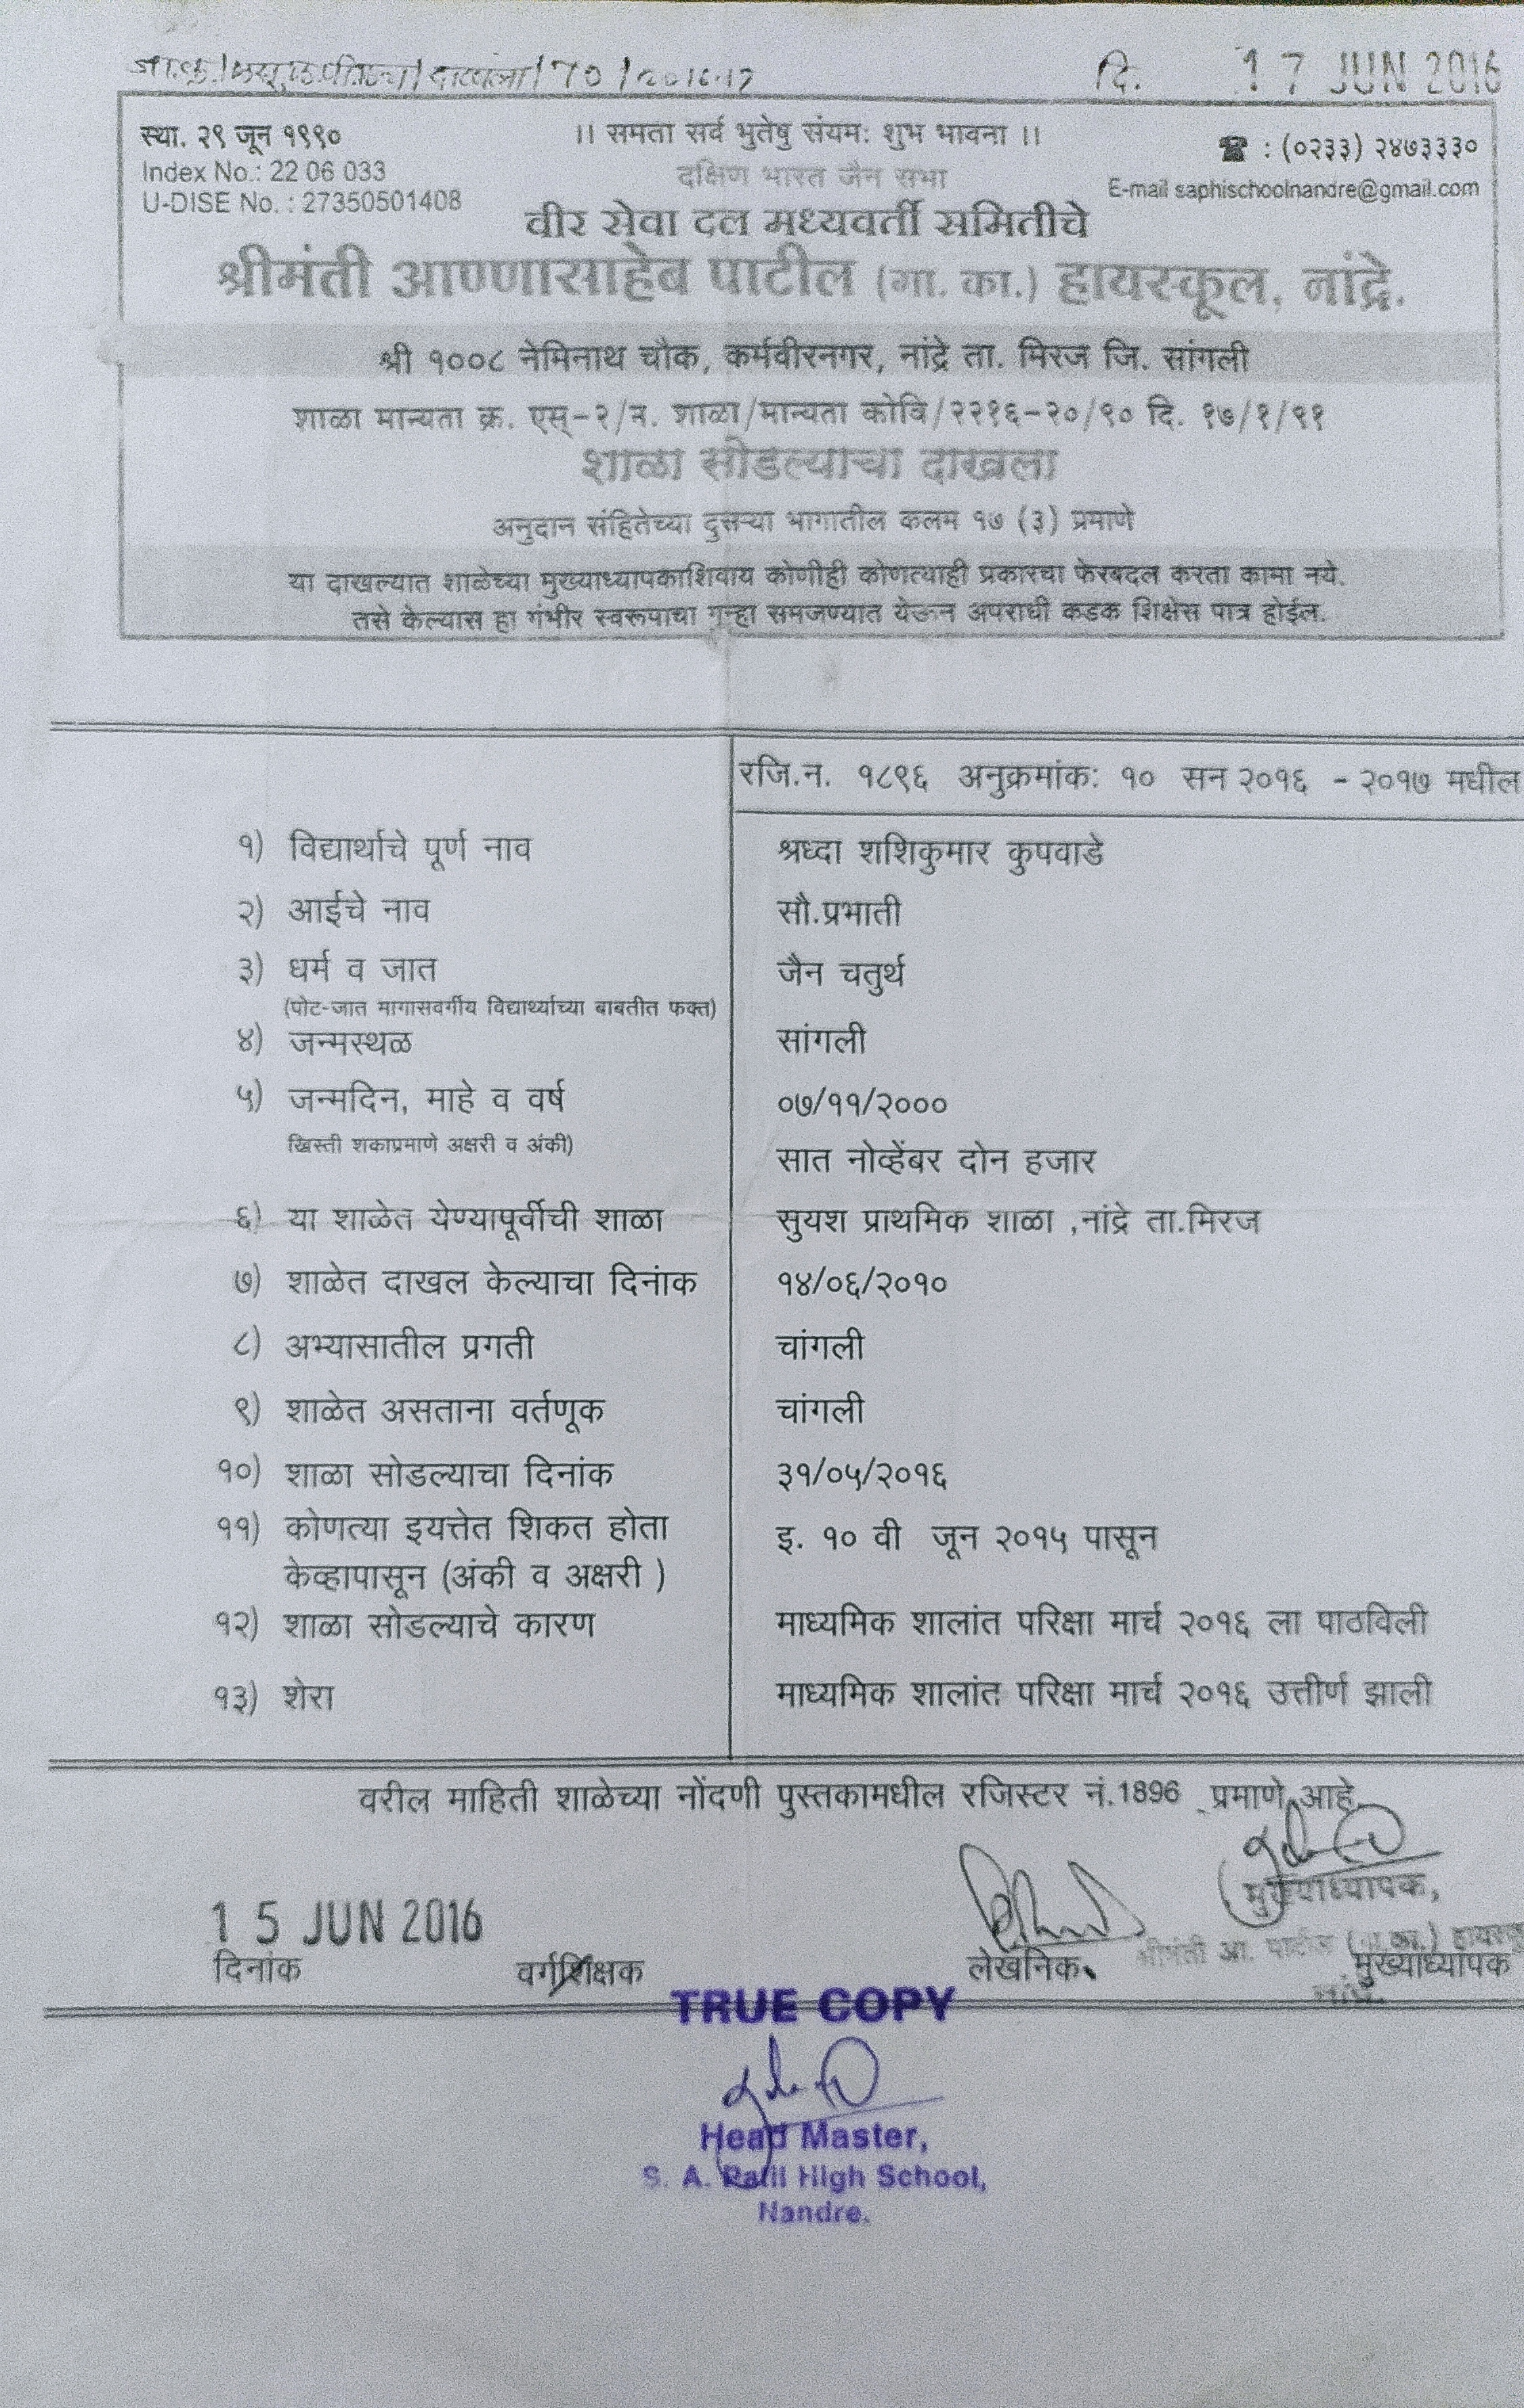 दाखला/70/2016-17 दि. 17 JUN 2016
स्था. २९ जून १९९० ।। समता सर्व भुतेषु संयमः शुभ भावना ।। ☎ : (०२३३) २४७३३३०
Index No.: 22 06 033 दक्षिण भारत जैन सभा E-mail saphischoolnandre@gmail.com
U-DISE No. : 27350501408
वीर सेवा दल मध्यवर्ती समितीचे
श्रीमंती आण्णासाहेब पाटील (गा. का.) हायस्कूल, नांद्रे.
श्री १००८ नेमिनाथ चौक, कर्मवीरनगर, नांद्रे ता. मिरज जि. सांगली
शाळा मान्यता क्र. एस्-२/न. शाळा/मान्यता कोवि/२२१६-२०/९० दि. १७/१/९१
शाळा सोडल्याचा दाखला
अनुदान संहितेच्या दुसऱ्या भागातील कलम १७ (३) प्रमाणे
या दाखल्यात शाळेच्या मुख्याध्यापकाशिवाय कोणीही कोणत्याही प्रकारचा फेरबदल करता कामा नये.
तसे केल्यास हा गंभीर स्वरूपाचा गुन्हा समजण्यात येऊन अपराधी कडक शिक्षेस पात्र होईल.
रजि.न. १८९६ अनुक्रमांक: १० सन २०१६ - २०१७ मधील
१) विद्यार्थाचे पूर्ण नाव श्रध्दा शशिकुमार कुपवाडे
२) आईचे नाव सौ.प्रभाती
३) धर्म व जात जैन चतुर्थ
(पोट-जात मागासवर्गीय विद्यार्थ्याच्या बाबतीत फक्त)
४) जन्मस्थळ सांगली
५) जन्मदिन, माहे व वर्ष ०७/११/२०००
खिस्ती शकाप्रमाणे अक्षरी व अंकी) सात नोव्हेंबर दोन हजार
६) या शाळेत येण्यापूर्वीची शाळा सुयश प्राथमिक शाळा ,नांद्रे ता.मिरज
७) शाळेत दाखल केल्याचा दिनांक १४/०६/२०१०
८) अभ्यासातील प्रगती चांगली
९) शाळेत असताना वर्तणूक चांगली
१०) शाळा सोडल्याचा दिनांक ३१/०५/२०१६
११) कोणत्या इयत्तेत शिकत होता इ. १० वी जून २०१५ पासून
केव्हापासून (अंकी व अक्षरी )
१२) शाळा सोडल्याचे कारण माध्यमिक शालांत परिक्षा मार्च २०१६ ला पाठविली
१३) शेरा माध्यमिक शालांत परिक्षा मार्च २०१६ उत्तीर्ण झाली
वरील माहिती शाळेच्या नोंदणी पुस्तकामधील रजिस्टर नं.1896 प्रमाणे आहे.
मुख्याध्यापक,
15 JUN 2016
श्रीमंती आ. पाटील (गा. का.) हायस्कू
दिनांक वर्गशिक्षक लेखनिक मुख्याध्यापक
नांद्रे.
TRUE COPY
Head Master,
S. A. Patil High School,
Nandre.